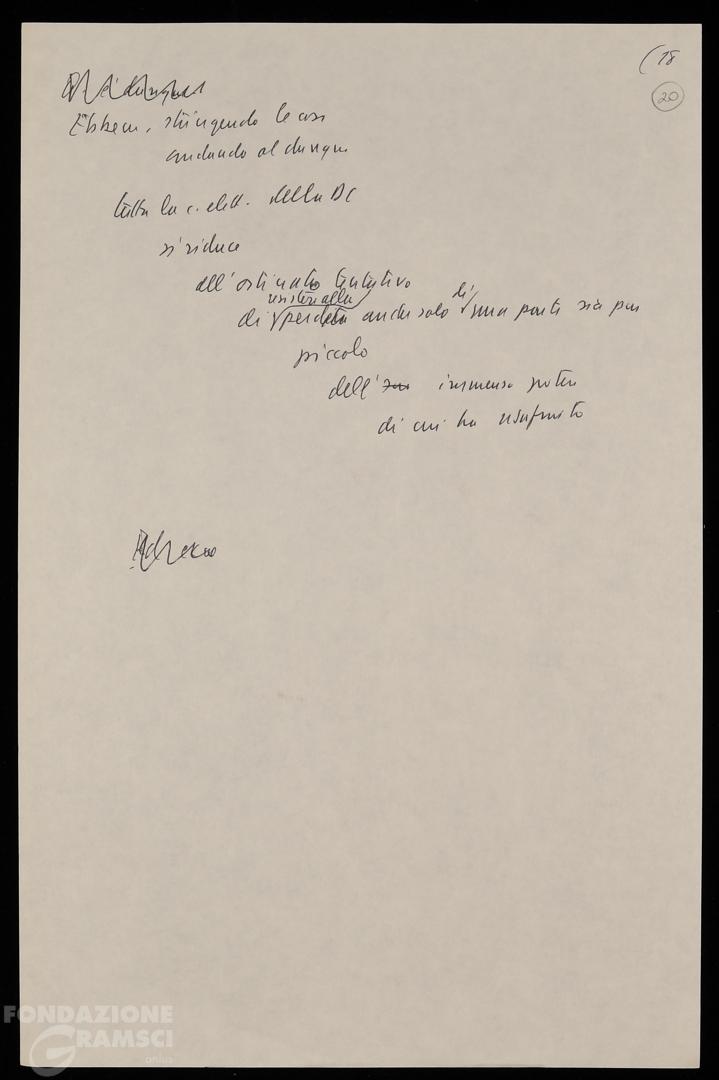 (18
20
Ebbene, stringendo le cose
andando al dunque
tutta la c. elett. della DC
si riduce
all'ostinato tentativo
resistere alla di
di perdita anche solo una parte sia pur
piccola
dell' immenso potere
di cui ha usufruito
FONDAZIONE
GRAMSCI
onlus